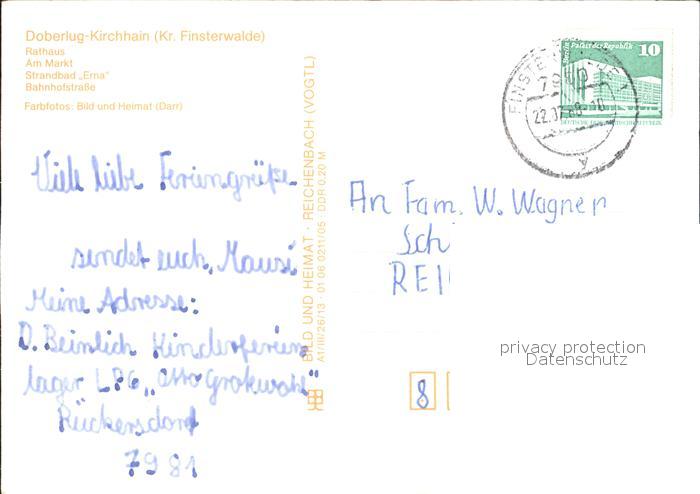 Doberlug-Kirchhain (Kr. Finsterwalde)
Rathaus
Am Markt
Strandbad „Erna"
Bahnhofstraße
Farbfotos: Bild und Heimat (Darr)
Viele liebe Feriengrüße
sendet euch, Mausi
Meine Adresse:
D. Beinlich Kinderferien
lager LPG „Otto Grotewohl"
Rückersdorf
7981
BILD UND HEIMAT · REICHENBACH (VOGTL)
A1/III/26/13 01 06 0211/05 · DDR 0,20 M
Berlin Palast der Republik
10
DEUTSCHE DEMOKRATISCHE REPUBLIK
22.07.
An Fam. W. Wagner
Sch
REI
privacy protection
Datenschutz
8